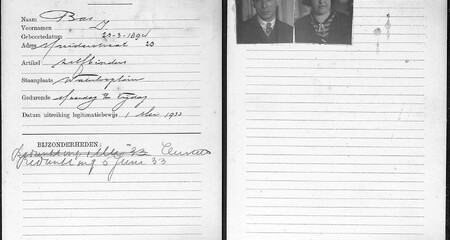 Naam Bas
Voornamen J
Geboortedatum 20-3-189
Adres Muiderstraat 20
Artikel zelfbinders
Staanplaats Waterlooplein
Gedurende Maandag t/m Vrijdag
Datum uitreiking legitimatiebewijs 1 Mei 1933
BIJZONDERHEDEN:
5 Juni 33